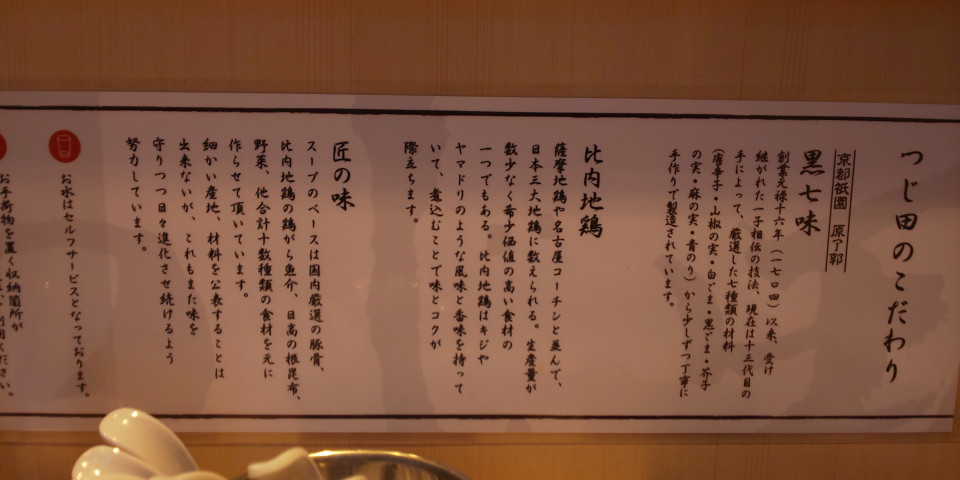 つじ田のこだわり
京都祇園 原了郭
黒七味
創業元禄十六年（一七〇四）以来、受け
継がれた一子相伝の技法、現在は十三代目の
手によって、厳選した七種類の材料
（唐辛子・山椒の実・白ごま・黒ごま・芥子
の実・麻の実・青のり）から少しずつ丁寧に
手作りで製造されています。
比内地鶏
薩摩地鶏や名古屋コーチンと並んで、
日本三大地鶏に数えられる。生産量が
数少なく希少価値の高い食材の
一つでもある。比内地鶏はキジや
ヤマドリのような風味と香味を持って
いて、煮込むことで味とコクが
際立ちます。
匠の味
スープのベースは国内厳選の豚骨、
比内地鶏の鶏がら魚介、日高の根昆布、
野菜、他合計十数種類の食材を元に
作らせて頂いています。
細かい産地、材料を公表することは
出来ないが、これもまた味を
守りつつ日々進化させ続けるよう
努力しています。
お水はセルフサービスとなっております。
お手荷物を置く収納箇所が
ください。